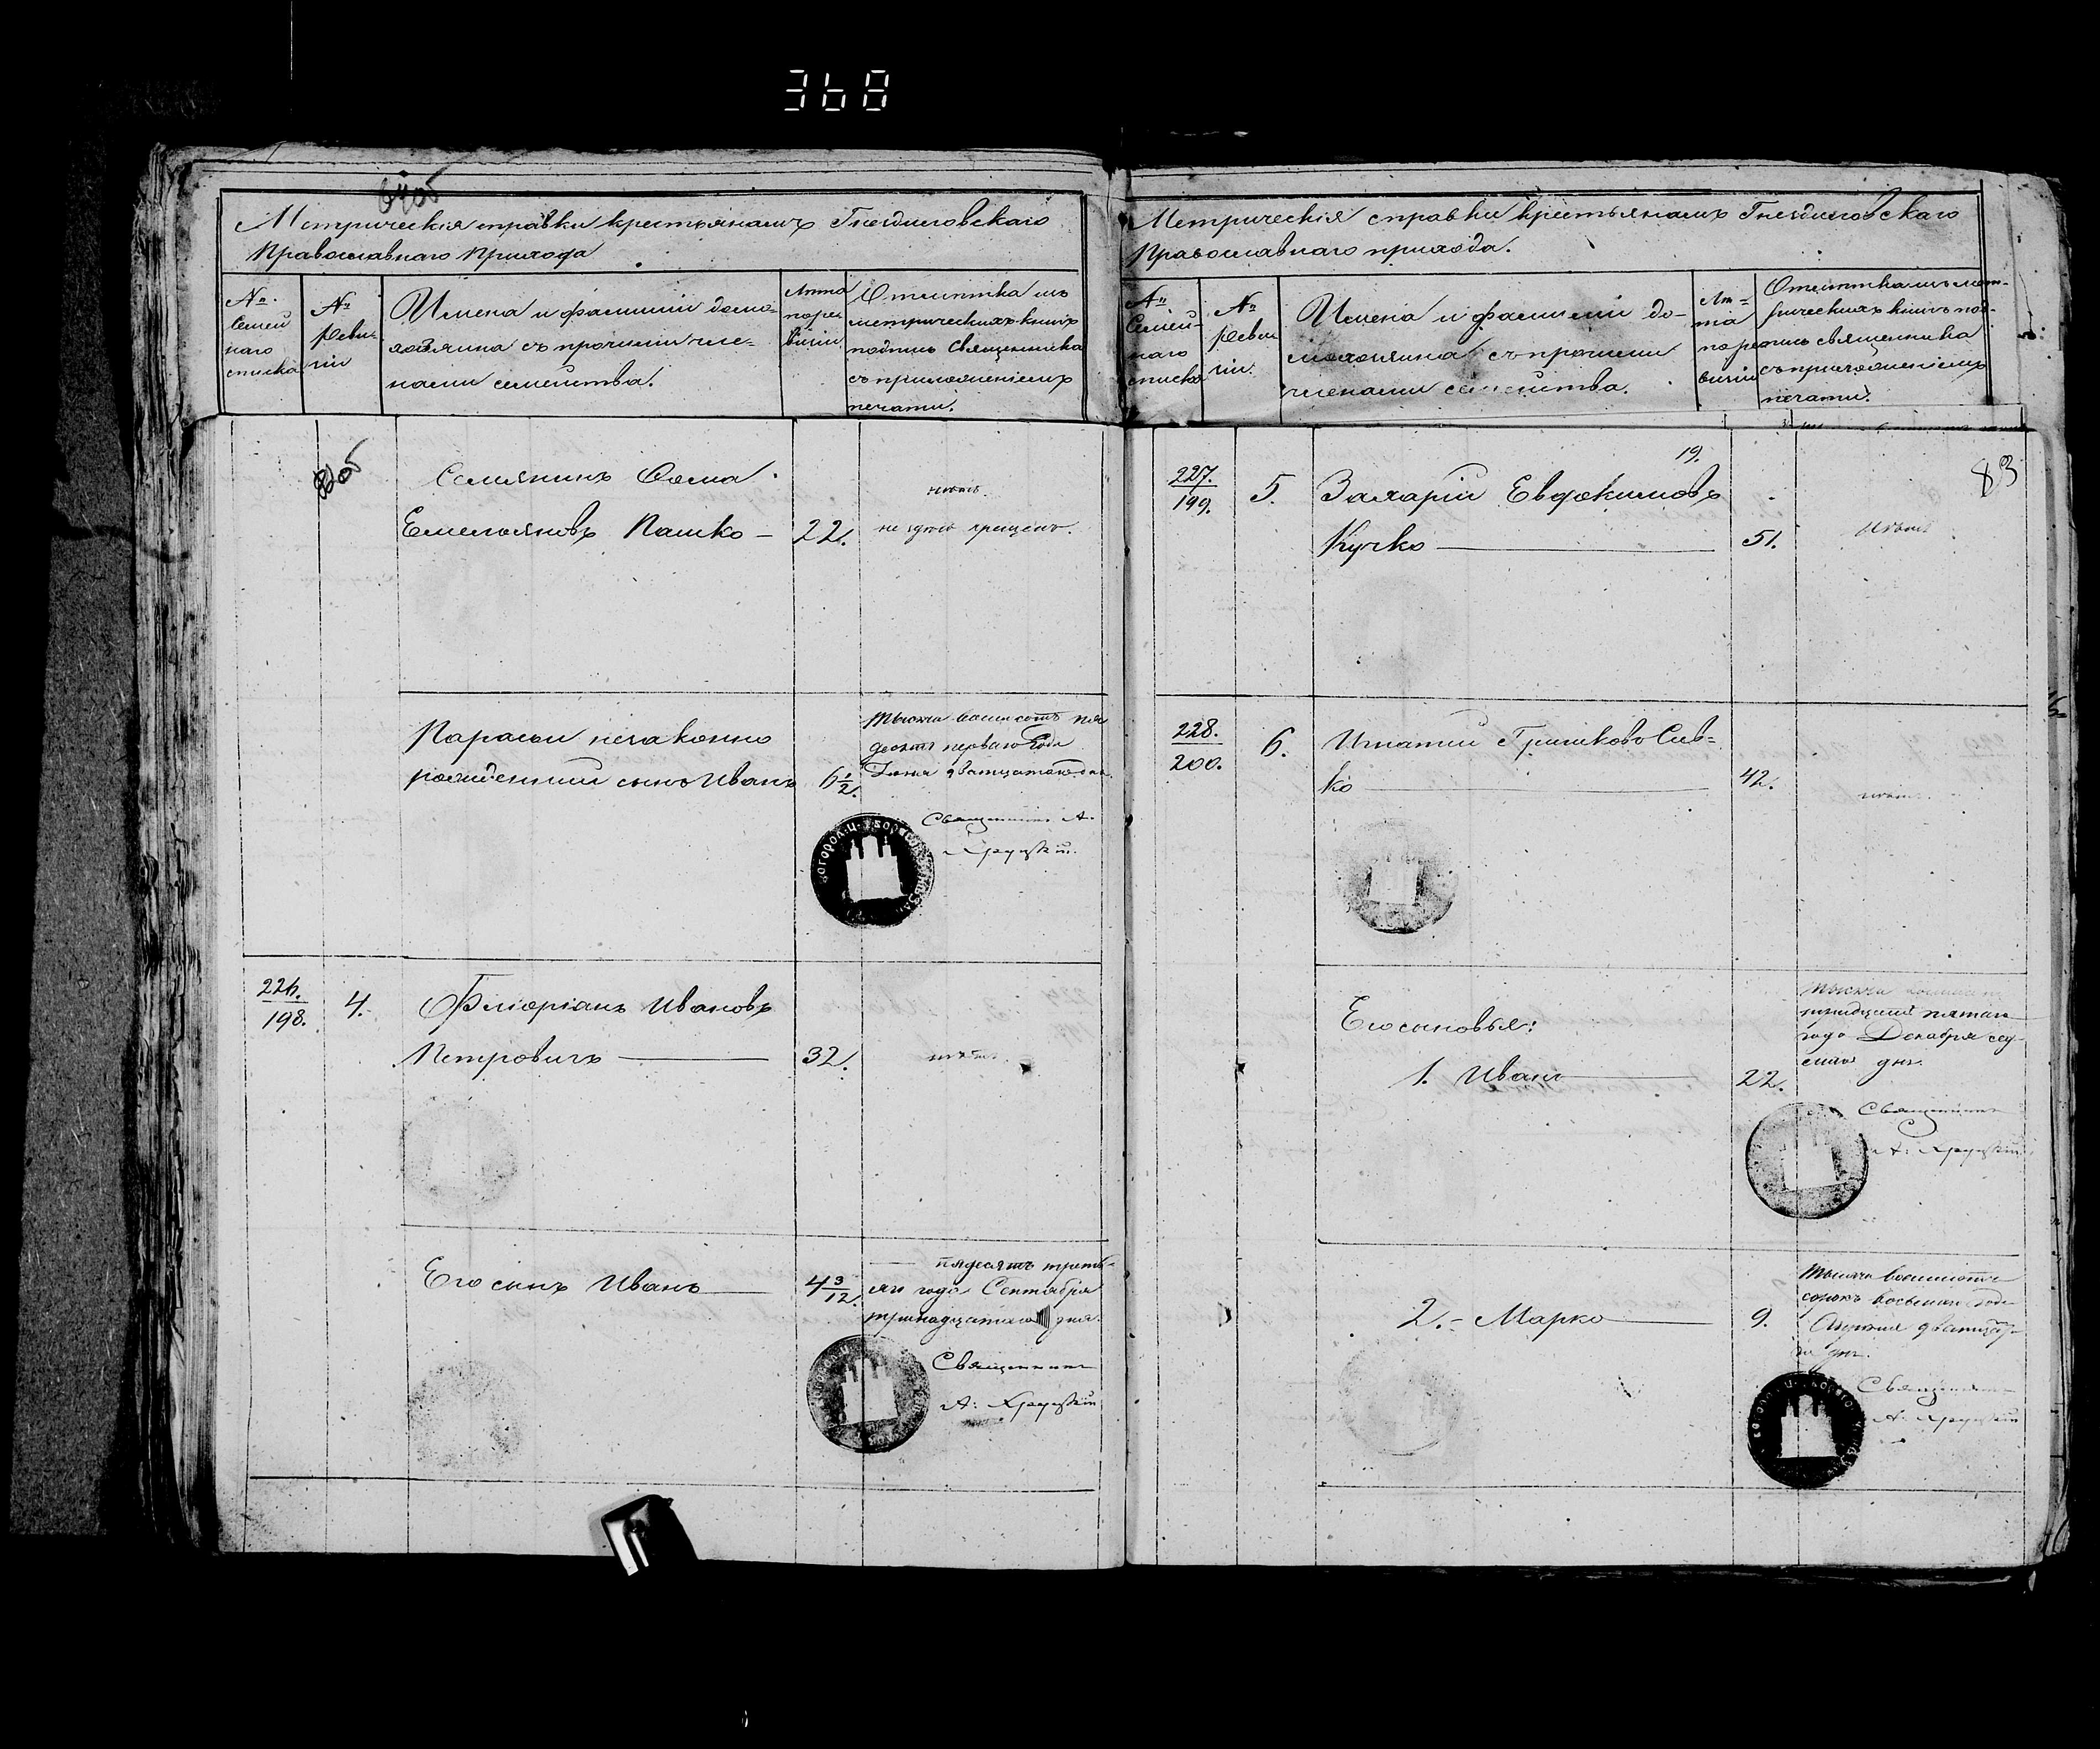 368
Метрическія справки крестьянамъ Гнездиловскаго
Православнаго Прихода
№
Семей
наго
списка
№
Реви-
зіи
Имена и фамиліи домо-
хозяина съ прочими чле-
нами семейства.
Лета
по ре
визіи
Отметка изъ
метрическихъ книгъ
подпись Священника
съ приложеніемъ
печати.
82об
Семянинъ Фома
Емельяновъ Пашко — 22.
нетъ.
не здесь крещенъ.
Парасьи незаконно
рожденный сынъ Иванъ 6 1/2.
Тысяча восемсотъ пя
десятъ перваго Года
Священникъ А.
Хруцкій.
226.
198.
4.
Флюріанъ Ивановъ
Петровичъ — 32.
нетъ.
Его сынъ Иванъ — 4 3/12.
пядесятъ треть-
яго года Сентября
тринадцатаго дня.
Священникъ
А: Хруцкій
Метрическія справки крестьянамъ Гнездиловскаго
Православнаго прихода.
№
Семей-
наго
списка
№
Реви
зіи.
Имена и фамиліи до-
мохозяина съ прочими
членами семейства.
Ле-
та
по ре
визіи
Отметка изъ мет-
рическихъ книгъ под-
пись священника
съ приложеніемъ
печати.
19.
83
227.
199.
5.
Захарій Евдокимовъ
Кучко — 51.
Нетъ.
228.
200.
6.
Игнатій Гришковъ Сив-
ко — 42.
нетъ.
Его сыновья:
1. Иванъ — 22.
Тысяча
тридцать пятаго
года Декабря сед-
маго дня.
Священникъ
А: Хруцкій
2.- Марко — 9.
Тысяча восемсотъ
сорокъ восьмаго Года
дня.
Священникъ
А: Хруцкій